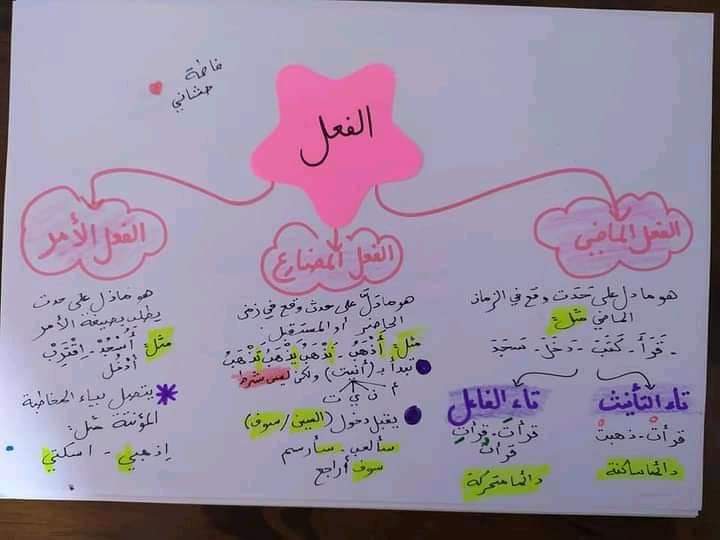 فاطمة
حشاني
الفعل
الفعل الماضي
هو ما دل على حَدَث وقع في الزمان
الماضي مثل:
- قَرَأَ - كَتَبَ - دَخَلَ - سَجَدَ
تاء التأنيث
قرأتْ - ذهبتْ
دائما ساكنة
تاء الفاعل
قرأتَ - قرأتِ
قرأتُ
دائما متحركة
الفعل المضارع
هو ما دَلَّ على حدث وقع في زمن
الحاضر أو المستقبل.
مثل: أَذْهَبُ - نَذْهَبُ يَذْهَبُ تَذْهَبُ
نبدأ بـ (أنيت) ولكن ليس شرط
أ ن ي ت
يقبل دخول (السين / سوف)
سألعب - سأرسم
سوف أراجع
الفعل الأمر
هو ما دل على حدث
يطلب بصيغة الأمر
مثل: أُسْجُدْ - اقْتَرِبْ
أدْخُل
يتصل بياء المخاطبة
المؤنثة مثل:
إذهبي - اسكتي